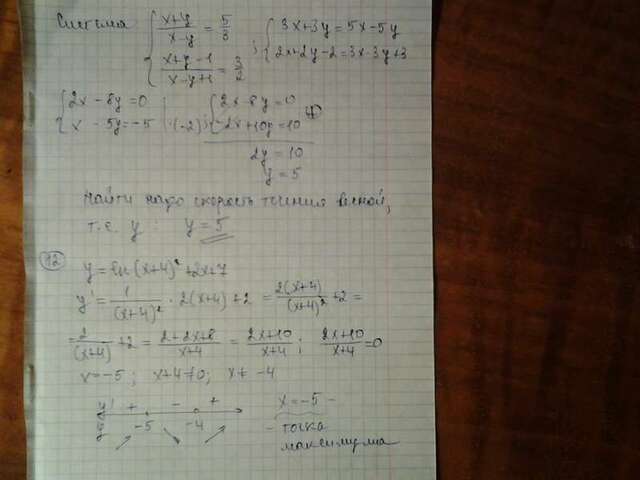 Система { (x+y)/(x-y) = 5/3 ; { 3x+3y=5x-5y
{ (x+y-1)/(x-y+1) = 3/2 { 2x+2y-2=3x-3y+3
{ 2x-8y=0 { 2x-8y=0
{ x-5y=-5 | ·(-2); { -2x+10y=10 (+)
2y=10
y=5
Найти надо скорость течения весной,
т.е. y : y=5
12 y=ln(x+4)²+2x+7
y'= 1/(x+4)² · 2(x+4)+2 = 2(x+4)/(x+4)² +2 =
= 2/(x+4) +2 = (2+2x+8)/(x+4) = (2x+10)/(x+4) ; (2x+10)/(x+4) =0
x=-5; x+4≠0; x≠-4
y' + - + x=-5 -
y -5 -4 - точка
максимума